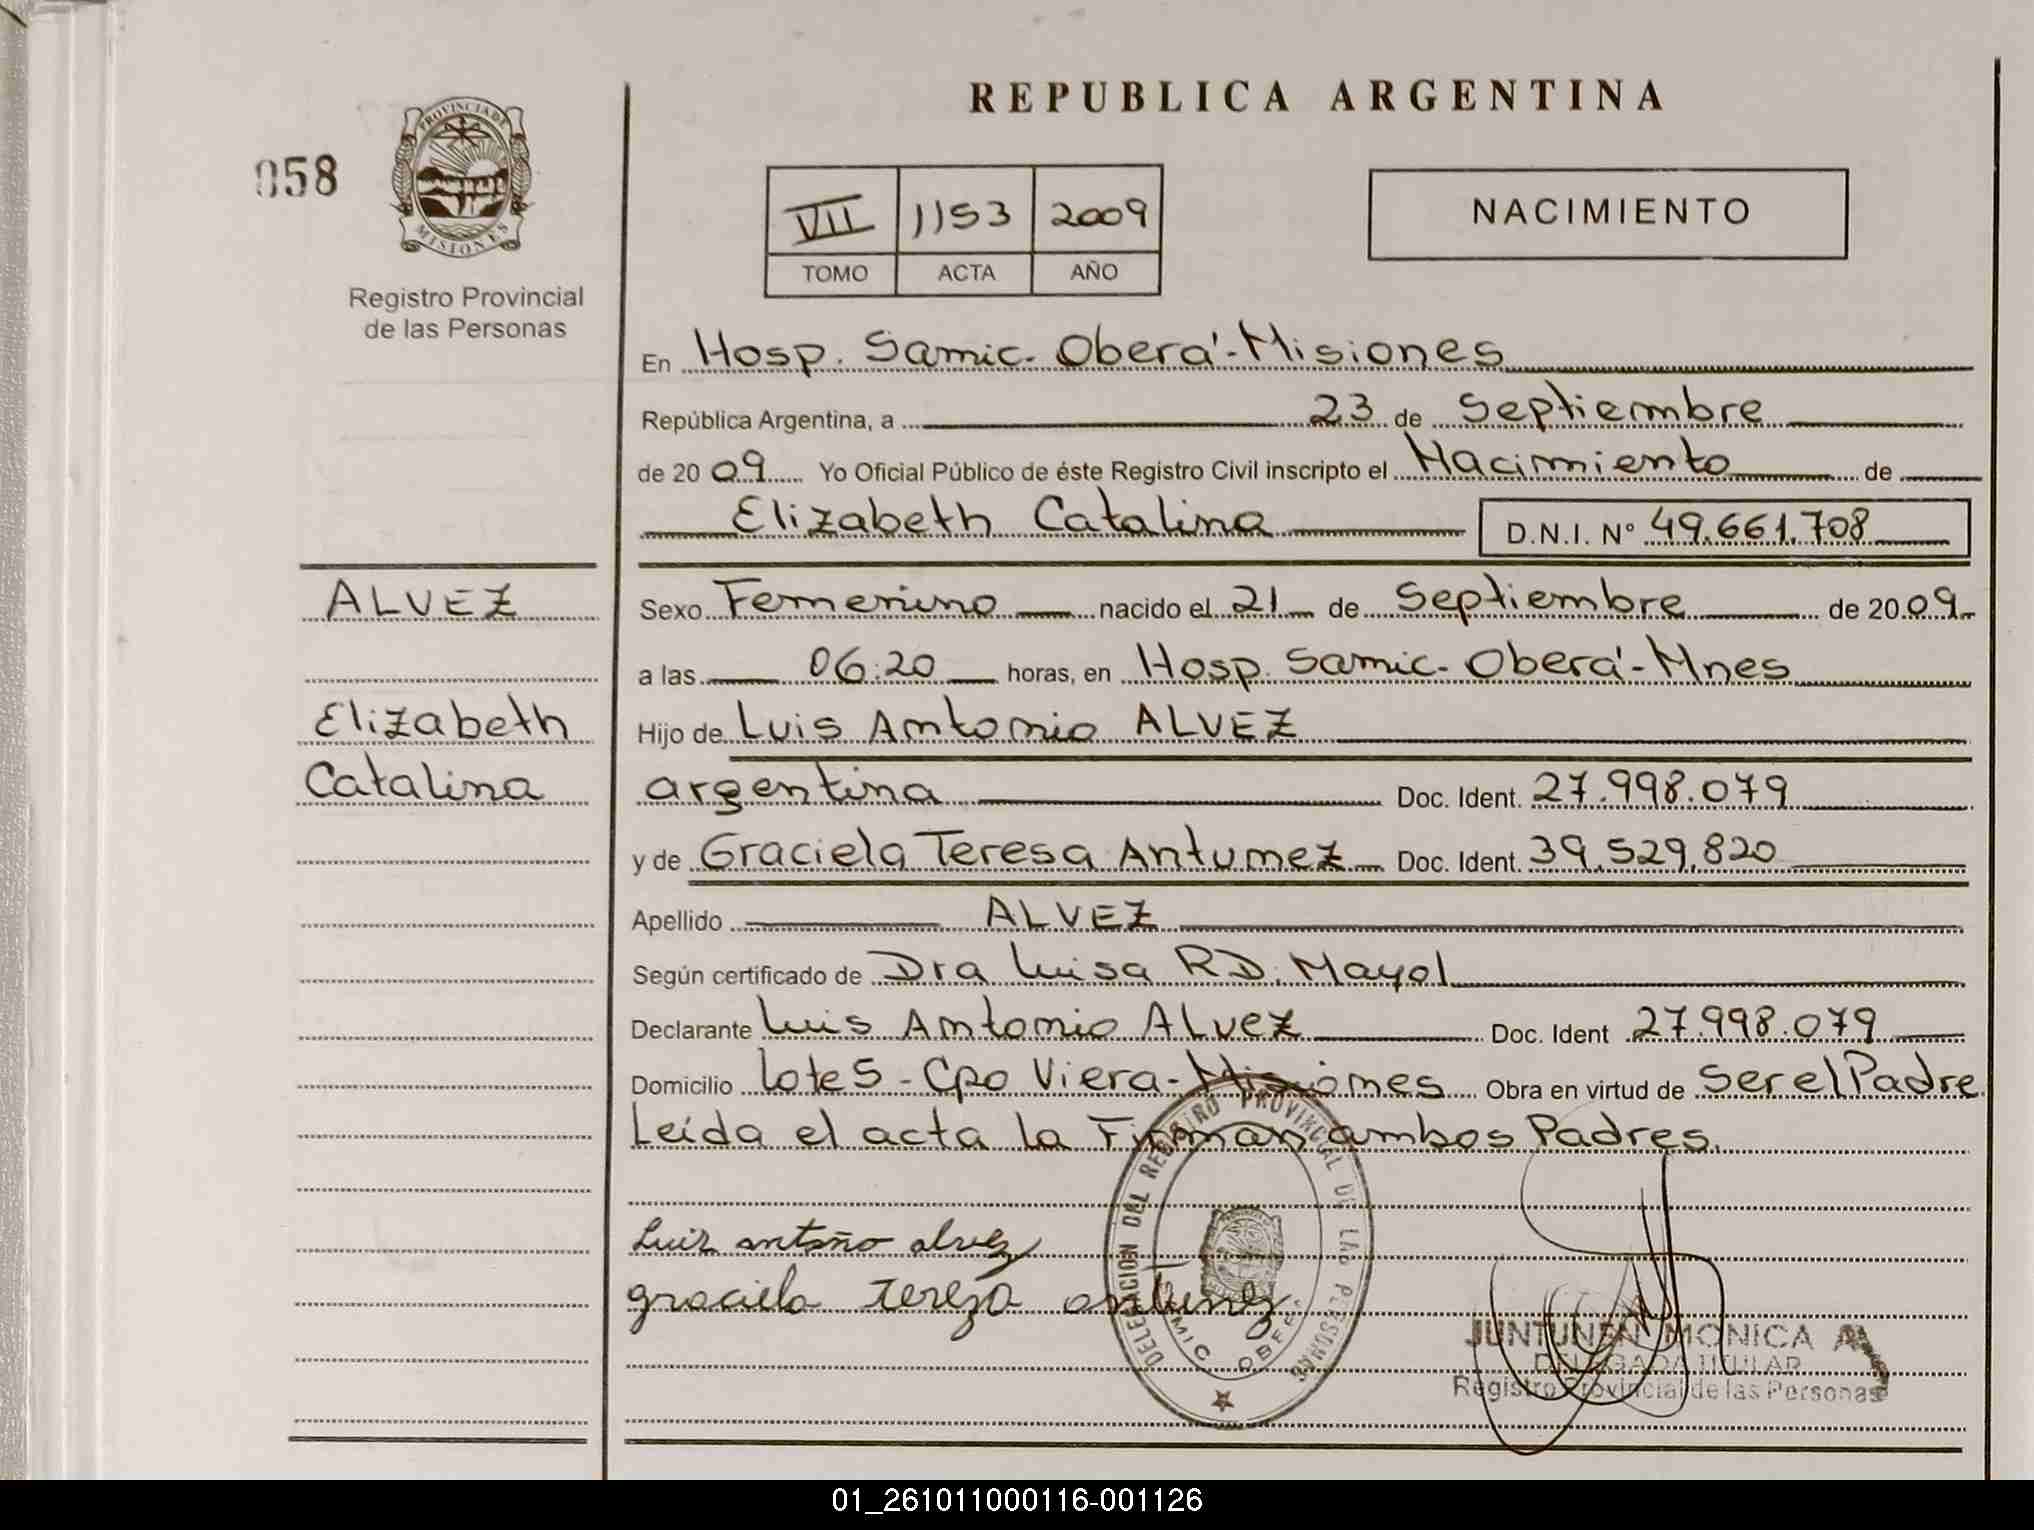 REPUBLICA ARGENTINA
058
PROVINCIA DE
MISIONES
Registro Provincial
de las Personas
VII 1153 2009
TOMO ACTA AÑO
NACIMIENTO
En Hosp. Samic. Oberá-Misiones
República Argentina, a 23 de Septiembre
de 2009 Yo Oficial Público de éste Registro Civil inscripto el Nacimiento de
Elizabeth Catalina D.N.I. Nº 49.661.708
ALVEZ
Elizabeth
Catalina
Sexo Femenino nacido el 21 de Septiembre de 2009
a las 06:20 horas, en Hosp. Samic-Oberá-Mnes
Hijo de Luis Antonio ALVEZ
argentina Doc. Ident. 27.998.079
y de Graciela Teresa Antunez Doc. Ident. 39.529.820
Apellido ALVEZ
Según certificado de Dra Luisa RD. Mayol
Declarante Luis Antonio ALVEZ Doc. Ident 27.998.079
Domicilio Lote 5 - Cpo Viera - Misiones Obra en virtud de Ser el Padre
Leída el acta la Firman ambos Padres.
Luiz antoño alvez
graciela tereza antunez
DELEGACION DEL REGISTRO PROVINCIAL DE LAS PERSONAS
JUNTUNEN MONICA A.
DELEGADA TITULAR
Registro Provincial de las Personas
01_261011000116-001126